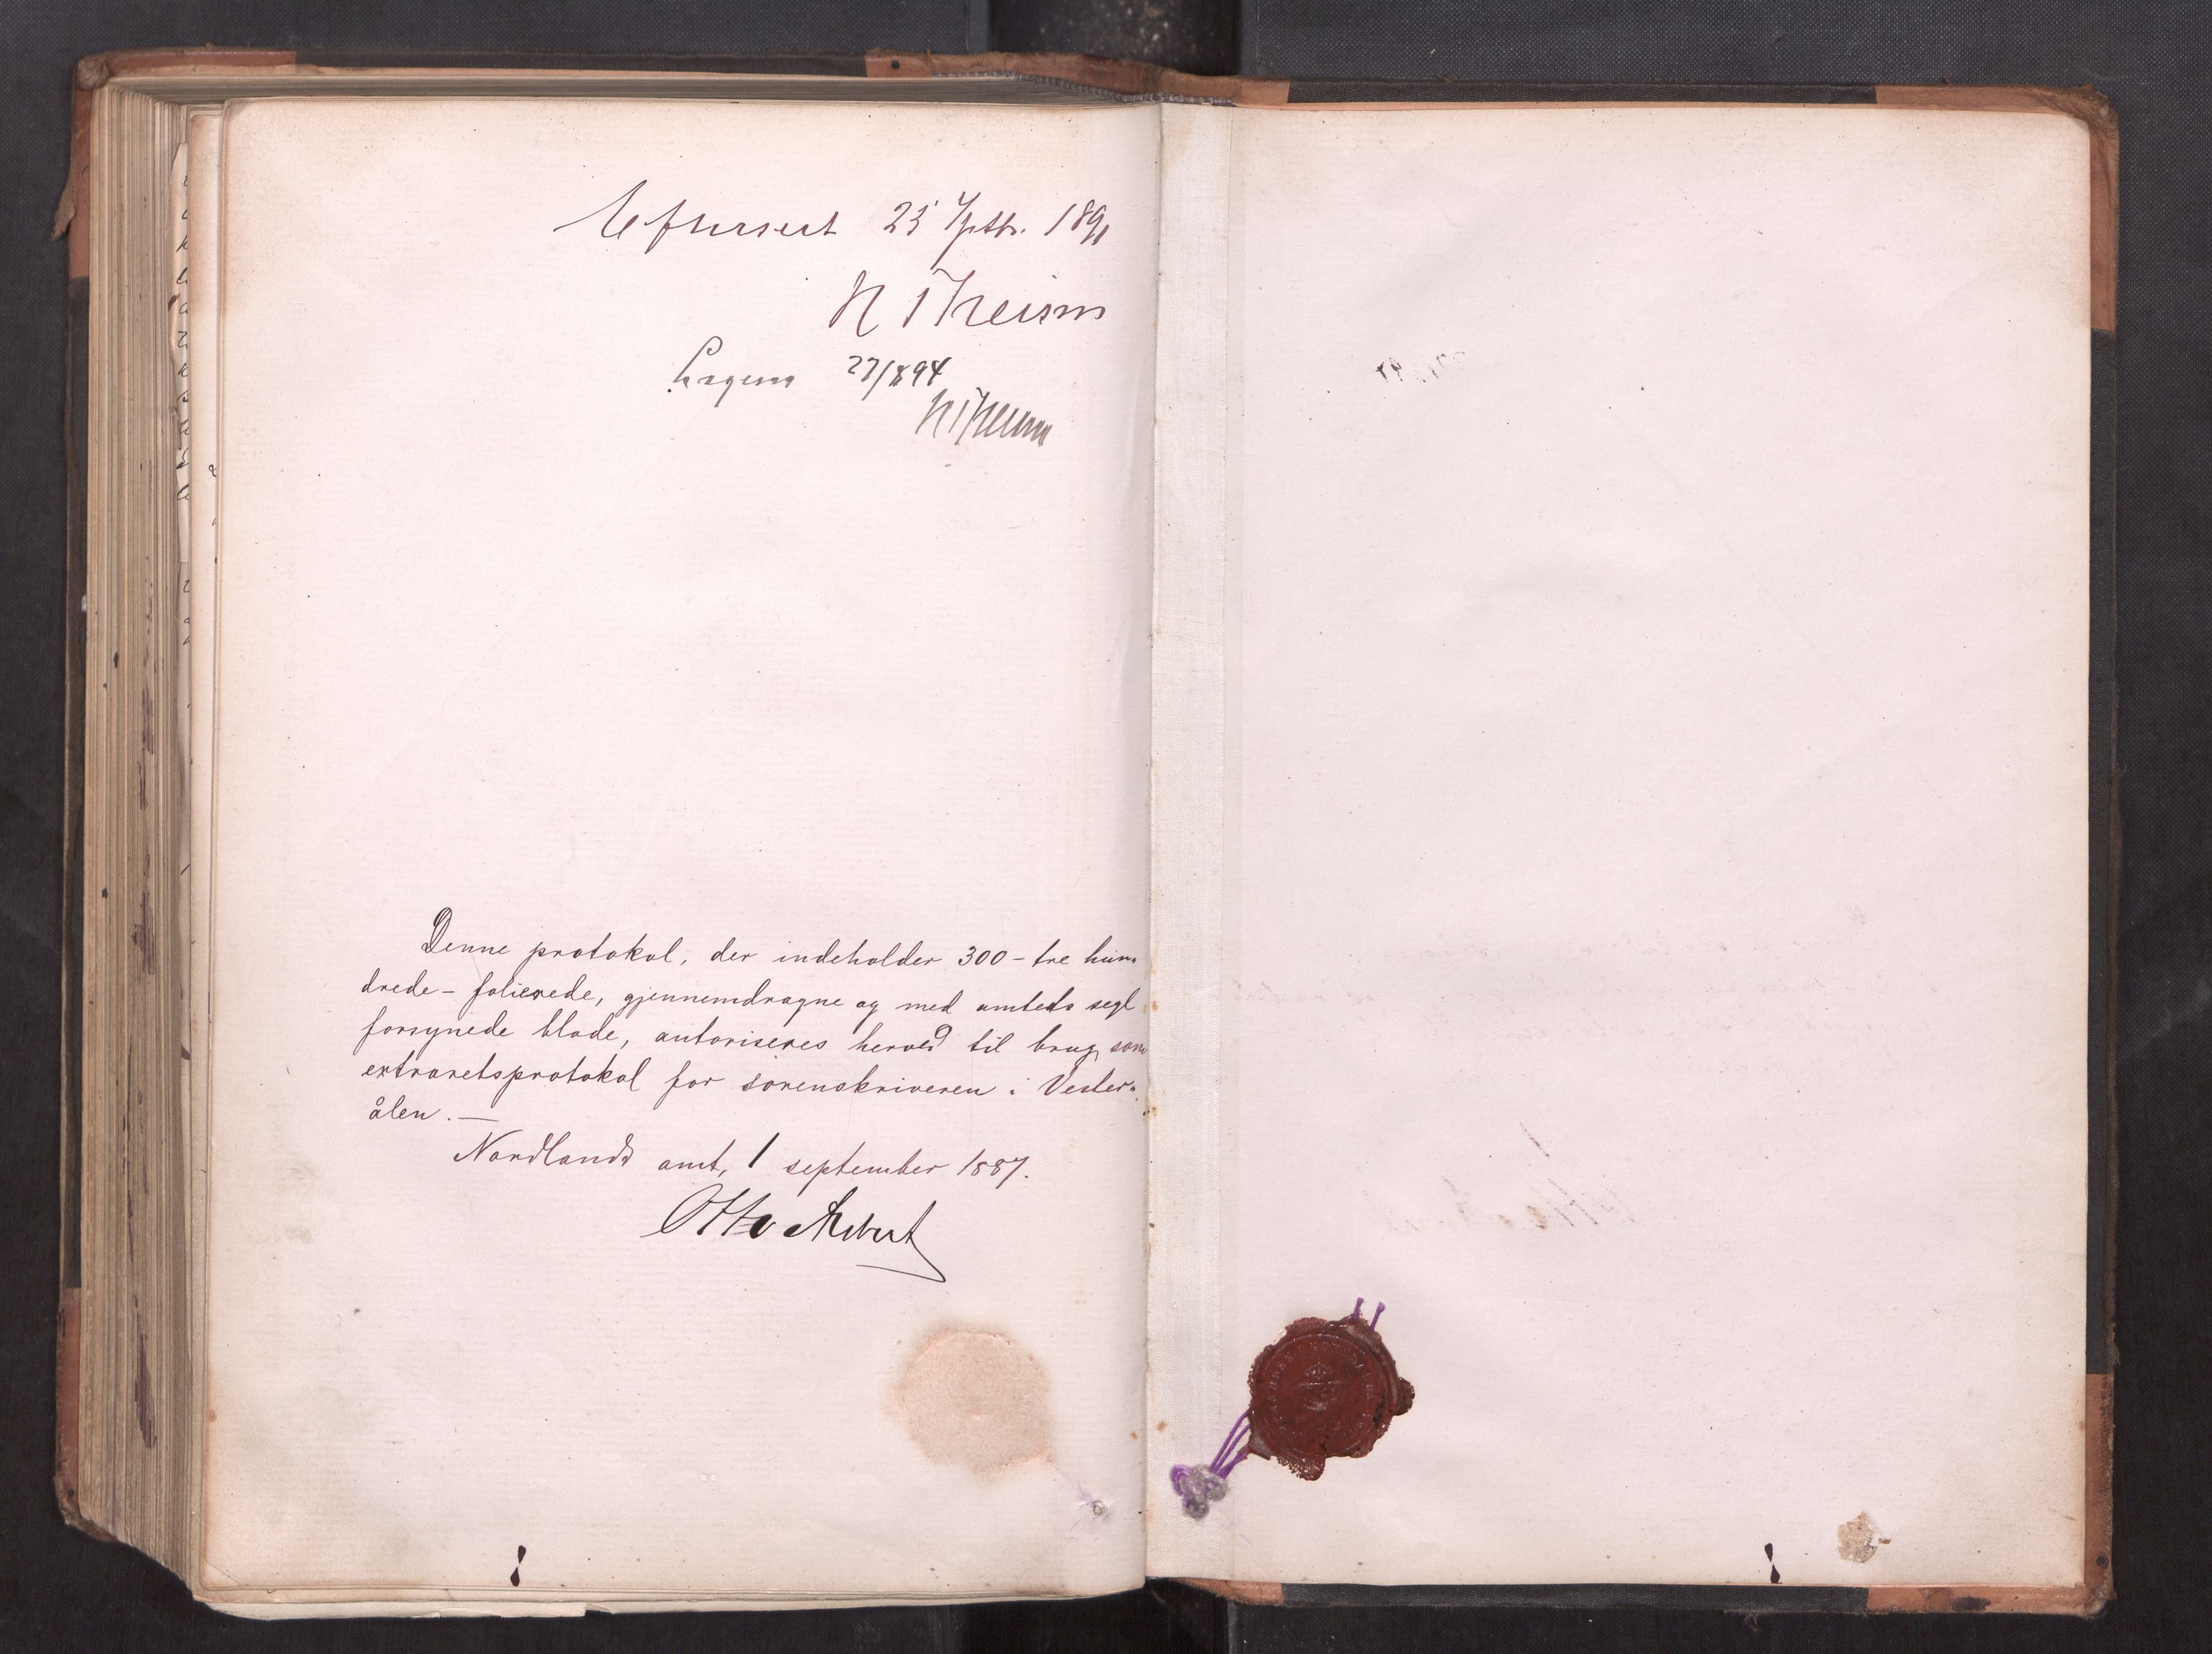 Efterseet 25 Septbr. 1891
N Theisen
27/8 94
N Theisen
Denne protokol, der indeholder 300 - tre hun-
drede - folierede, gjennemdragne og med amtets segl
forsynede blade, autoriseres herved til brug som
extraretsprotokol for sorenskriveren i Vester-
ålen. —
Nordlands amt, 1 september 1887.
Otto